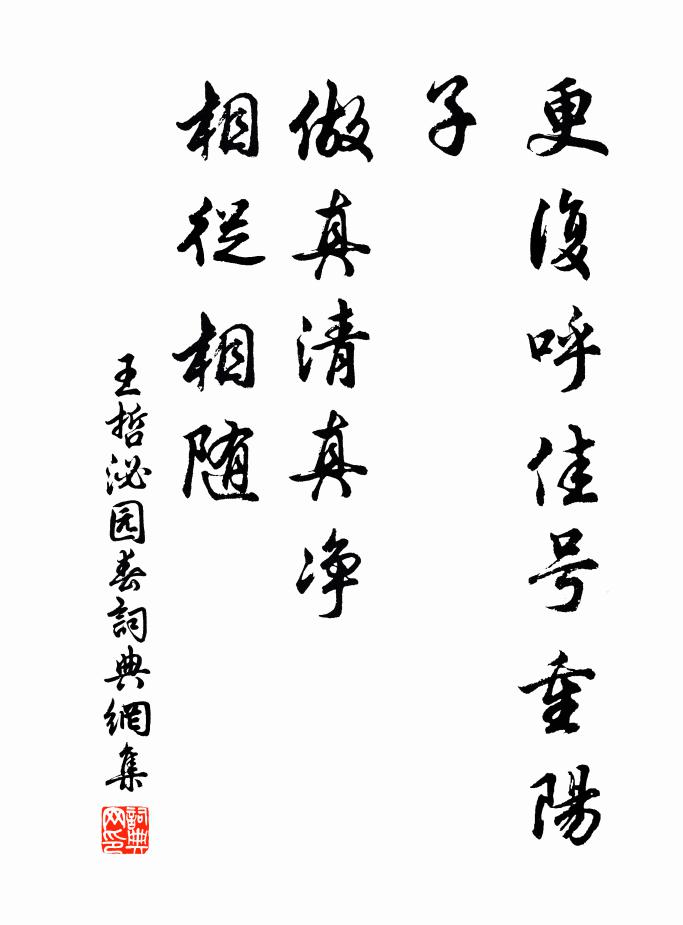 更復呼佳号重陽
子
做真清真净
相從相随
王哲泌园春詞典網集
詞典网印